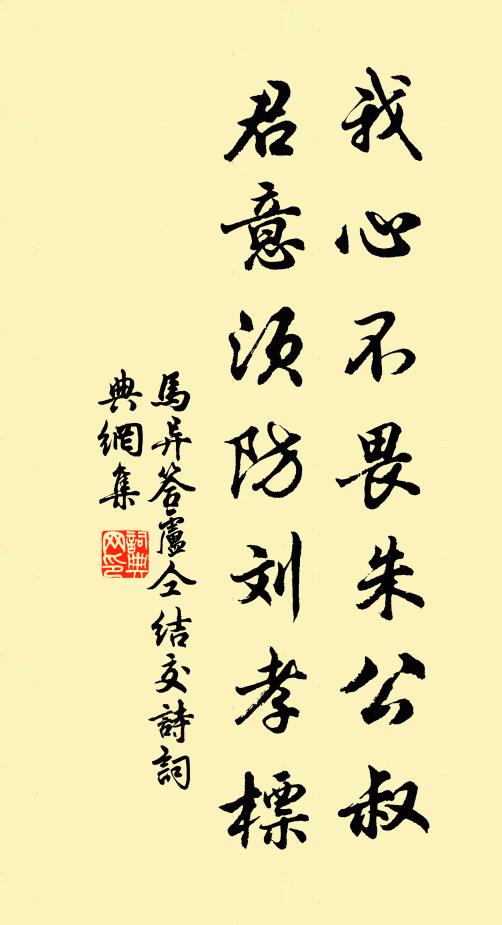 我心不畏朱公叔
君意须防刘孝標
馬异答盧仝结交詩詞
典網集
詞典
网印